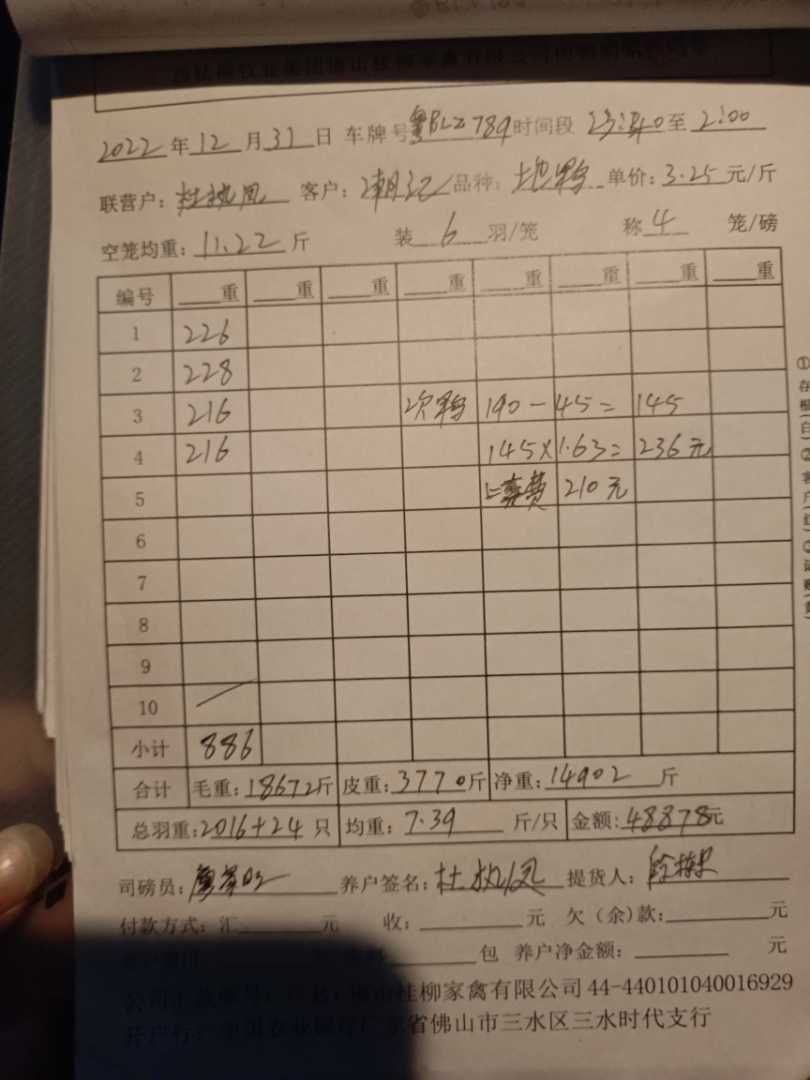 2022年12月31日 车牌号粤BLZ789时间段 23:40至2:00
联营户：杜执凤 客户：潮记 品种：土地鸭 单价：3.25元/斤
空笼均重：11.22斤 装6羽/笼 称4笼/磅
编号 重 重 重 重 重 重 重 重
1 226
2 228
3 216 次鸭 190-45= 145
4 216 145×1.63= 236元
5 上车费 210元
6
7
8
9
10
小计 886
合计 毛重：18672斤 皮重：3770斤 净重：14902斤
总羽重：2016+24只 均重：7.39斤/只 金额：48878元
司磅员： 养户签名：杜执凤 提货人：
付款方式：汇 元 收： 元 欠（余）款： 元
包 养户净金额： 元
佛山桂柳家禽有限公司44-440101040016929
省佛山市三水区三水时代支行